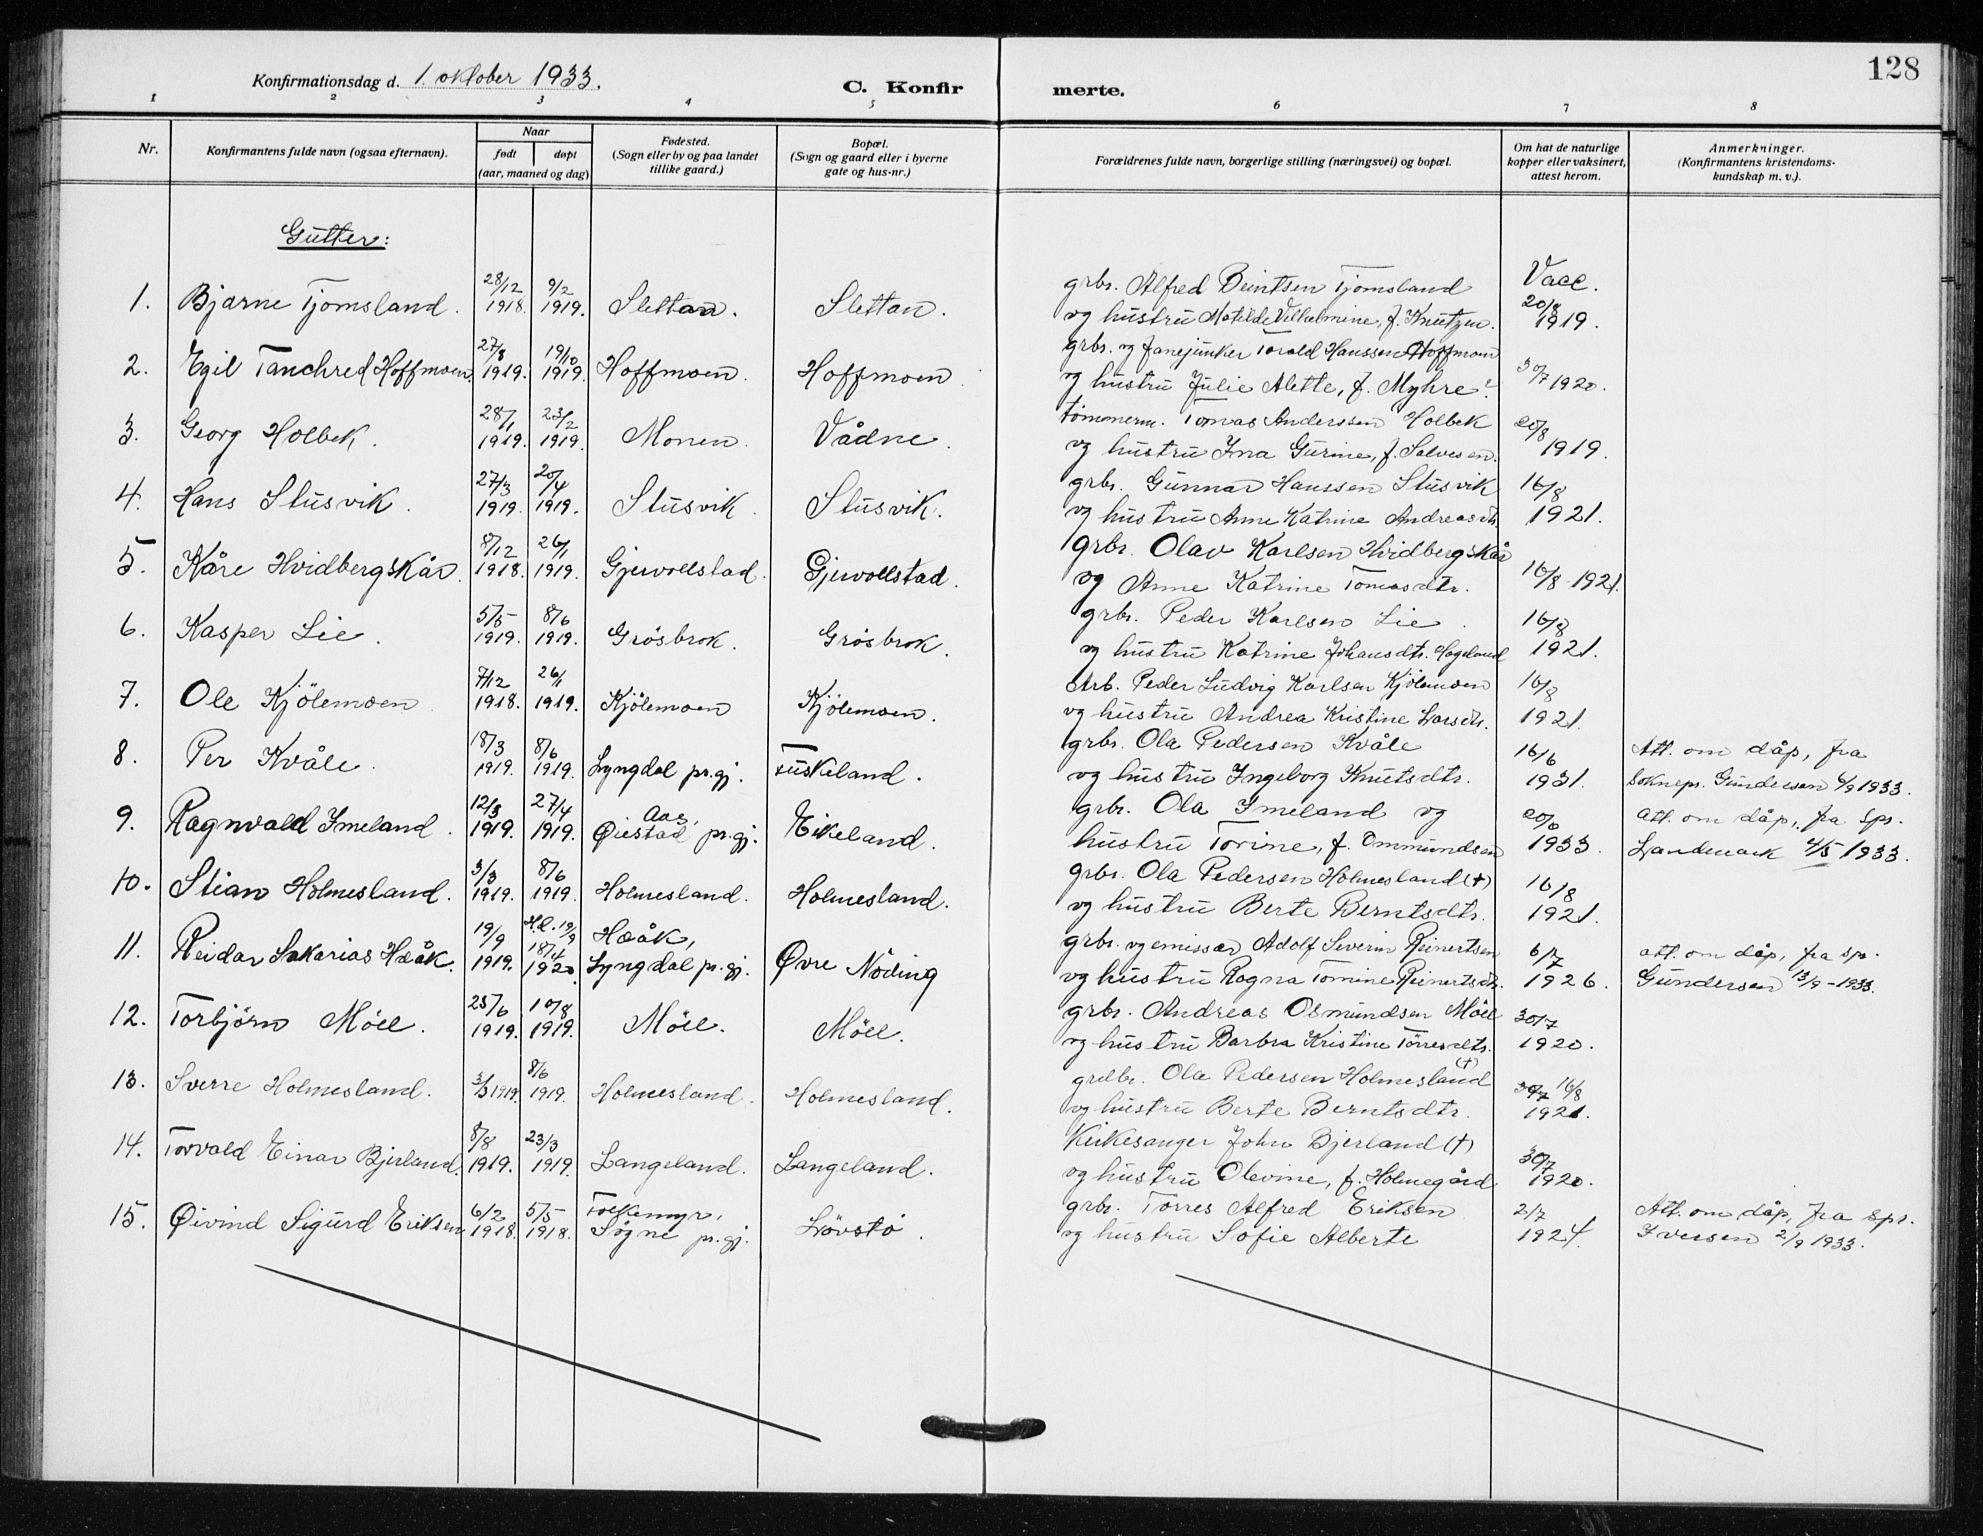 128
Konfirmationsdag d. 1. oktober 1933.
C. Konfirmerte.
1 2 3 4 5 6 7 8
Nr.
Konfirmantens fulde navn (ogsaa efternavn).
Naar
født døpt
(aar, maaned og dag)
Fødested.
(Sogn eller by og paa landet
tillike gaard.)
Bopæl.
(Sogn og gaard eller i byerne
gate og hus-nr.)
Forældrenes fulde navn, borgerlige stilling (næringsvei) og bopæl.
Om hat de naturlige
kopper eller vaksinert,
attest herom.
Anmerkninger.
(Konfirmantens kristendoms-
kundskap m. v.).
Gutter:
28/12 9/2 grbr. Alfred Beintsen Tjomsland Vacc.
1. Bjarne Tjomsland. 1918. 1919. Slettan. Slettan. og hustru Matilde Vilhelmine, f. Knutzen. 20/8 1919.
27/8 19/10 grbr. og fanejunker Torald Hanssen Hoffmoen
2. Egil Tanchred Hoffmoen. 1919. 1919. Hoffmoen. Hoffmoen. og hustru Julie Alette, f. Myhre. 30/7 1920.
28/1 23/2 tömmerm. Tomas Anderssen Holbek 20/8
3. Georg Holbek. 1919. 1919. Monen. Vådne. og hustru Ina Gurine, f. Salvesen. 1919.
27/3 20/4 grbr. Gunnar Hanssen Stusvik 16/8
4. Hans Stusvik. 1919. 1919. Stusvik. Stusvik. og hustru Anne Katrine Andreasdtr. 1921.
8/12 26/1 grbr. Olav Karlsen Hvidbergskår
5. Kåre Hvidbergskår. 1918. 1919. Gjervollstad. Gjervollstad. og Anne Katrine Tomasdtr. 16/8-1921.
5/5 8/6 grbr. Peder Karlsen Lie. 16/8
6. Kasper Lie. 1919. 1919. Grösbrok. Grösbrok. og hustru Katrine Johansdtr. Hageland 1921.
7/12 26/1 Arb. Peder Ludvig Karlsen Kjölemoen 16/8
7. Ole Kjölemoen. 1918. 1919. Kjölemoen Kjölemoen. og hustru Andrea Kristine Larsdtr. 1921.
18/3 8/6 grbr. Ola Pedersen Kvåle 16/6 Att. om dåp, fra
8. Per Kvåle. 1919. 1919. Lyngdal pr.gj. Fuskeland. og hustru Ingeborg Knutsdtr. 1931. Soknepr. Gundersen 4/9 1933.
12/3 27/4 Aas, grbr. Ola Imeland og 20/6 att. om dåp, fra Spr.
9. Ragnvald Imeland. 1919. 1919. Øiestad pr.gj. Eikeland. hustru Torine, f. Ommundsen 1933. Landmark 4/5 1933.
3/3 8/6 grbr. Ola Pedersen Holmesland (†) 16/8
10. Stian Holmesland. 1919. 1919. Holmesland. Holmesland. og hustru Berte Berntsdtr. 1921.
19/9 H.d. 19/9 18/4 Hæåk, grbr. og emissær Adolf Severin Reinertsen 6/7 att. om dåp, fra spr.
11. Reidar Sakarias Hæåk. 1919. 1920 Lyngdal pr.gj. Øvre Nöding og hustru Ragna Tomine Reinertsdtr. 1926. Gundersen 13/9-1933.
25/6 10/8 grbr. Andreas Osmundsen Möll 30/7
12. Torbjörn Möll. 1919. 1919. Möll. Möll. og hustru Barbra Kristine Törresdtr. 1920.
8/6 grdbr. Ola Pedersen Holmesland (†) 30/7 16/8
13. Sverre Holmesland. 3/3 1919. 1919. Holmesland. Holmesland. og hustru Berte Berntsdtr. 1921.
8/8 23/3 Kirkesanger John Bjerland (†) 30/7
14. Torvald Einar Bjerland. 1919. 1919. Langeland. Langeland. og hustru Olevine, f. Holmegård 1920.
6/2 5/5 Tolkemyr, grbr. Törres Alfred Eriksen 2/7 Att. om dåp, fra Spr.
15. Øivind Sigurd Eriksen 1918. 1918. Sögne pr.gj. Lövstö. og hustru Sofie Alberte 1924. Iversen 2/9 1933.